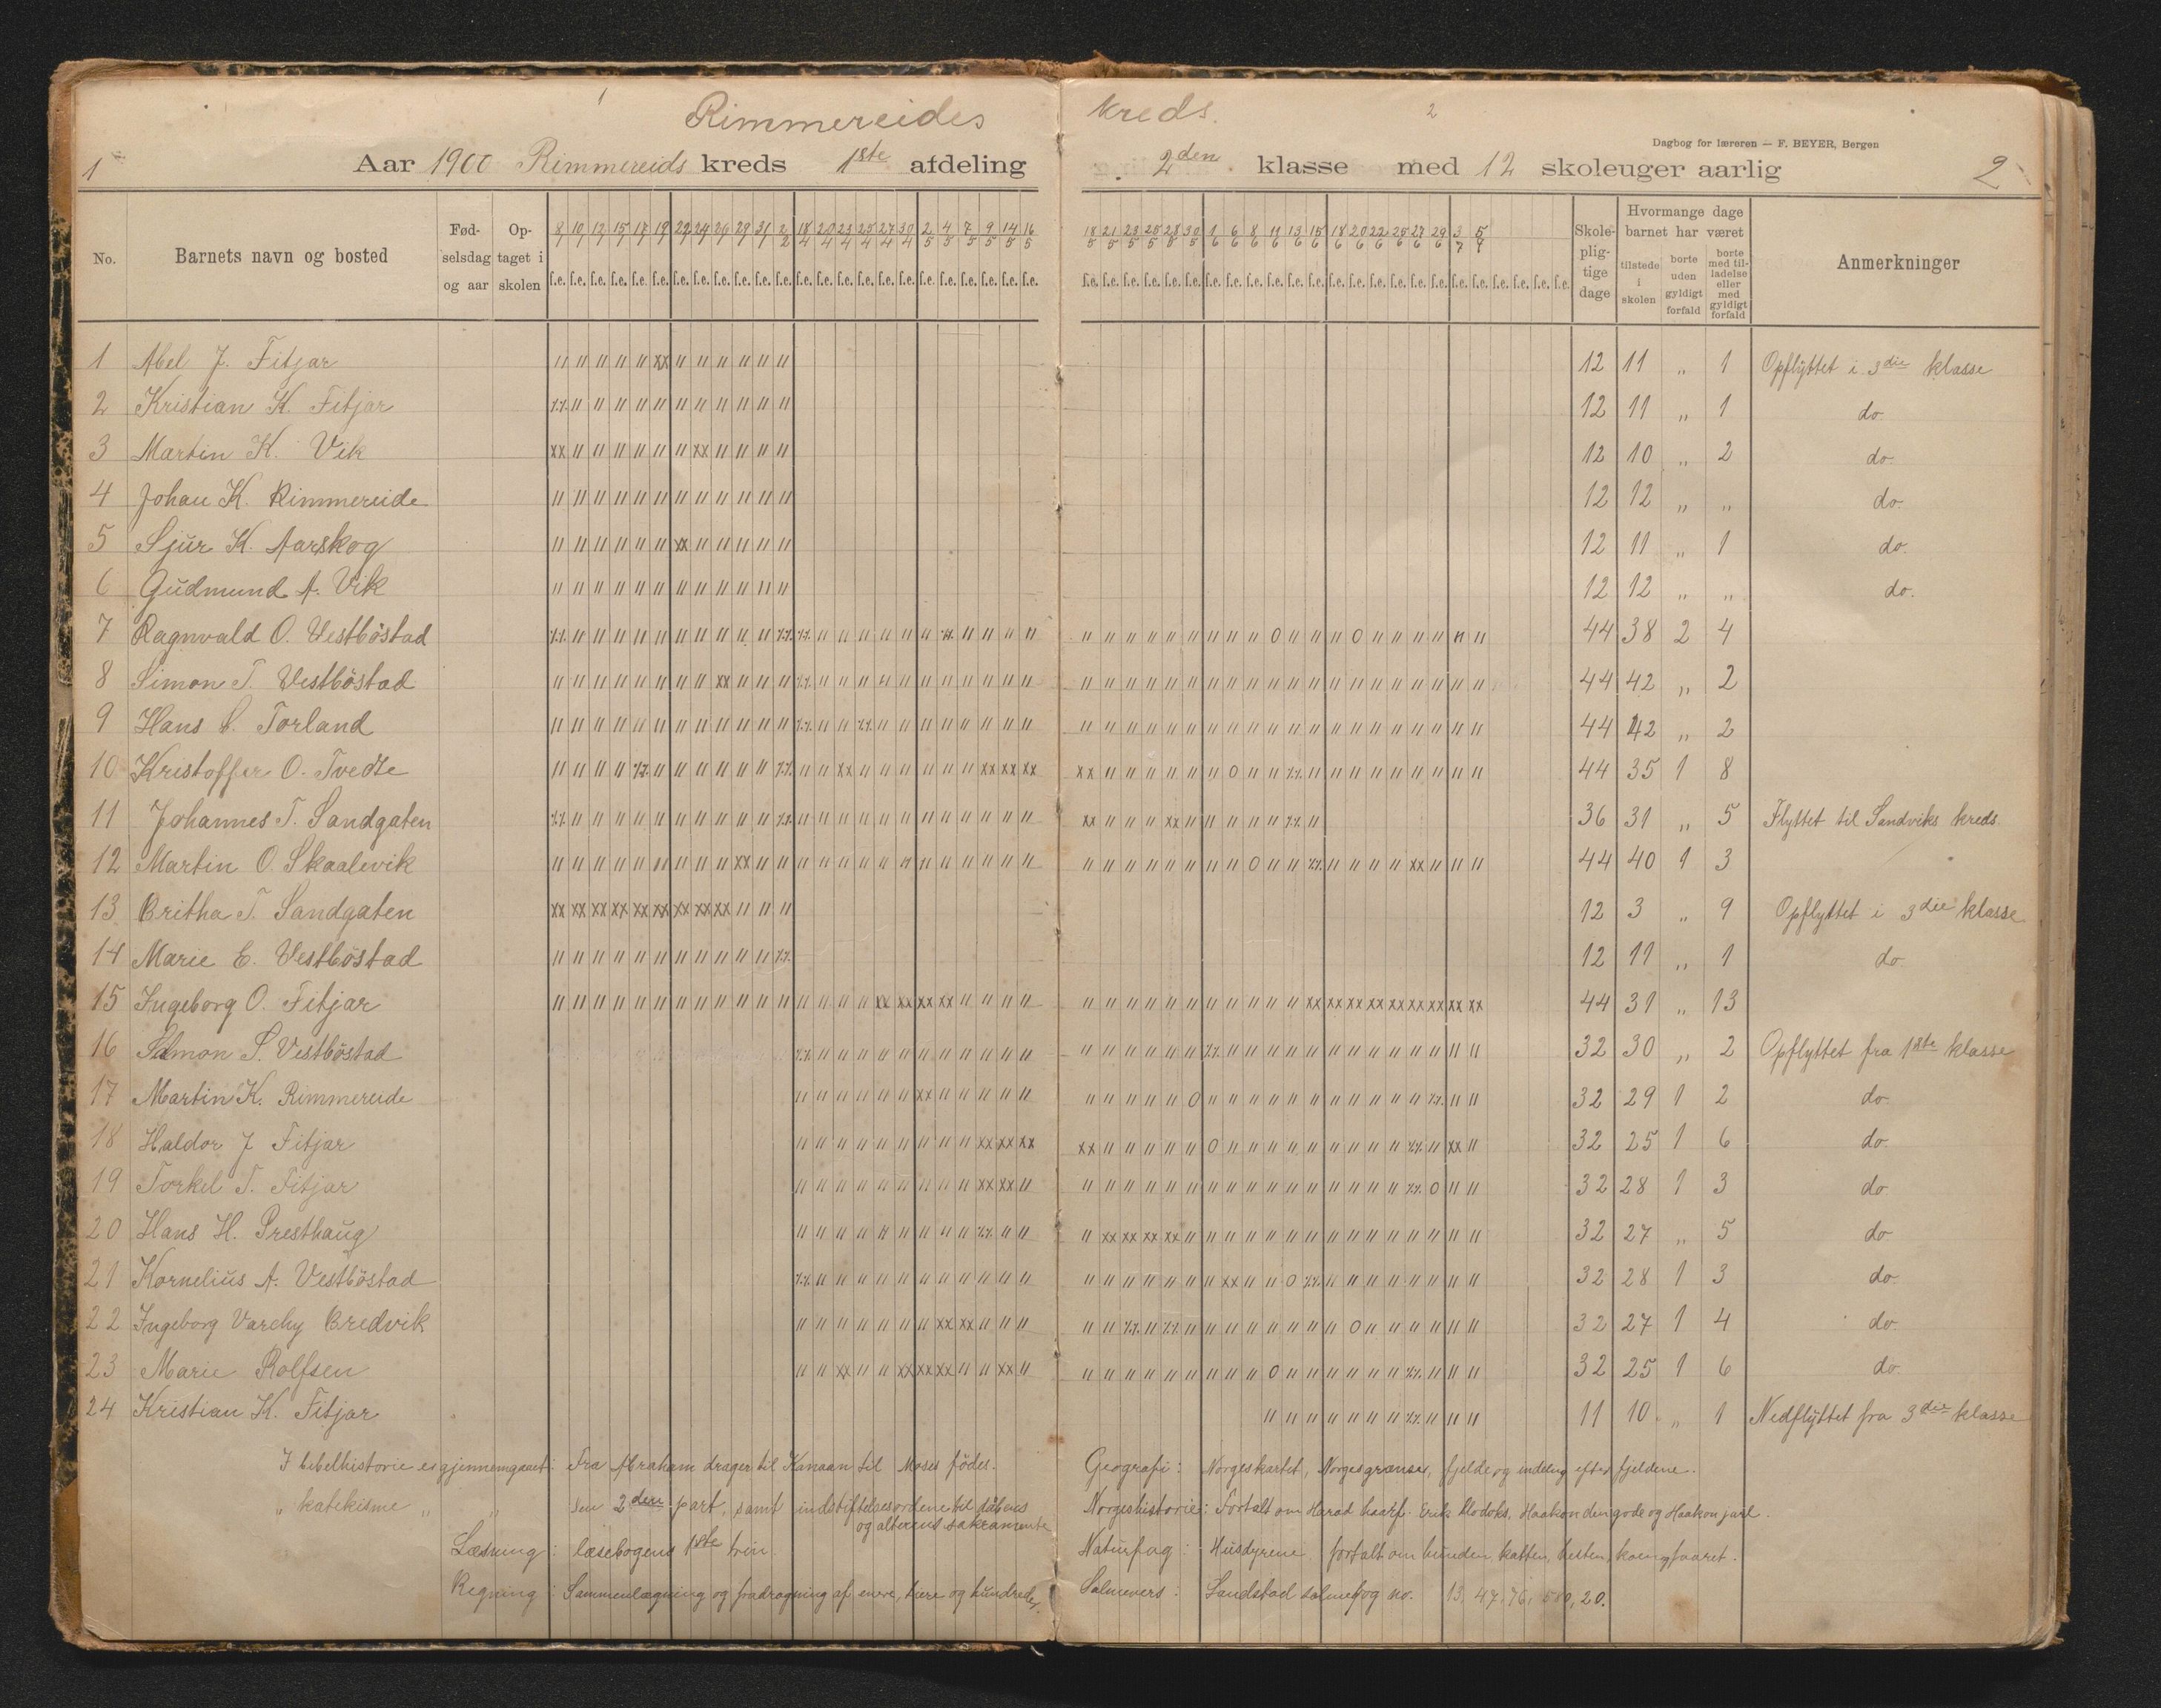 Rimmereides kreds.
2
Dagbog for læreren — F. BEYER, Bergen
1 Aar 1900 Rimmereids kreds 1ste afdeling 2den klasse med 12 skoleuger aarlig 2
No. Barnets navn og bosted Fødselsdag og aar Optaget i skolen Skolepligtige dage Hvormange dage barnet har været tilstede i skolen borte uden gyldigt forfald borte med tilladelse eller med gyldigt forfald Anmerkninger
8/1 10/1 12/1 15/1 17/1 19/1 22/1 24/1 26/1 29/1 31/1 2/2 18/4 20/4 23/4 25/4 27/4 30/4 2/5 4/5 7/5 9/5 14/5 16/5 18/5 21/5 23/5 25/5 28/5 30/5 1/6 6/6 8/6 11/6 13/6 15/6 18/6 20/6 22/6 25/6 27/6 29/6 3/7 5/7
f.e. f.e. f.e. f.e. f.e. f.e. f.e. f.e. f.e. f.e. f.e. f.e. f.e. f.e. f.e. f.e. f.e. f.e. f.e. f.e. f.e. f.e. f.e. f.e. f.e. f.e. f.e. f.e. f.e. f.e. f.e. f.e. f.e. f.e. f.e. f.e. f.e. f.e. f.e. f.e. f.e. f.e. f.e. f.e. f.e. f.e. f.e. f.e.
1 Abel J. Fitjar 12 11 „ 1 Opflyttet i 3die klasse
2 Kristian K. Fitjar 12 11 „ 1 do.
3 Martin K. Vik 12 10 „ 2 do.
4 Johan K. Rimmereide 12 12 „ „ do.
5 Sjur K. Aarskog 12 11 „ 1 do.
6 Gudmund A. Vik 12 12 „ „ do.
7 Ragnvald O. Vestböstad 44 38 2 4
8 Simon T. Vestböstad 44 42 „ 2
9 Hans C. Torland 44 42 „ 2
10 Kristoffer O. Tvedte 44 35 1 8
11 Johannes T. Sandgaten 36 31 „ 5 Flyttet til Sandviks kreds.
12 Martin O. Skaalevik 44 40 1 3
13 Britha T. Sandgaten 12 3 „ 9 Opflyttet i 3die klasse
14 Marie E. Vestböstad 12 11 „ 1 do
15 Ingeborg O. Fitjar 44 31 „ 13
16 Simon S. Vestböstad 32 30 „ 2 Opflyttet fra 1ste klasse
17 Martin K. Rimmereide 32 29 1 2 do
18 Haldor J Fitjar 32 25 1 6 do.
19 Torkel T. Fitjar 32 28 1 3 do
20 Hans H. Presthaug 32 27 „ 5 do
21 Kornelius A. Vestböstad 32 28 1 3 do.
22 Ingeborg Bredvik 32 27 1 4 do.
23 Marie Rolfsen 32 25 1 6 do.
24 Kristian K. Fitjar 11 10 „ 1 Nedflyttet fra 3die klasse
I bibelhistorie er gjennemgaaet: Fra Abraham drager til Kanaan til Moses födes.
„ katekisme „ „ den 2den part, samt indstiftelsesordene til daabens
og alterens sakramente
Læsning: læsebogens 1ste trin
Regning: Sammenlægning og fradragning af enere, tiere og hundreder.
Geografi: Norgeskartet, Norges grænser, fjelde og indeling efter fjeldene.
Norgeshistorie: Fortalt om Harad haarf. Erik blodöks, Haakon den gode og Haakon jarl.
Naturfag: Husdyrene fortalt om hunden katten, hesten, koen, faaret.
Salmevers: Landstad salmebog no. 13, 47, 76, 500, 20.